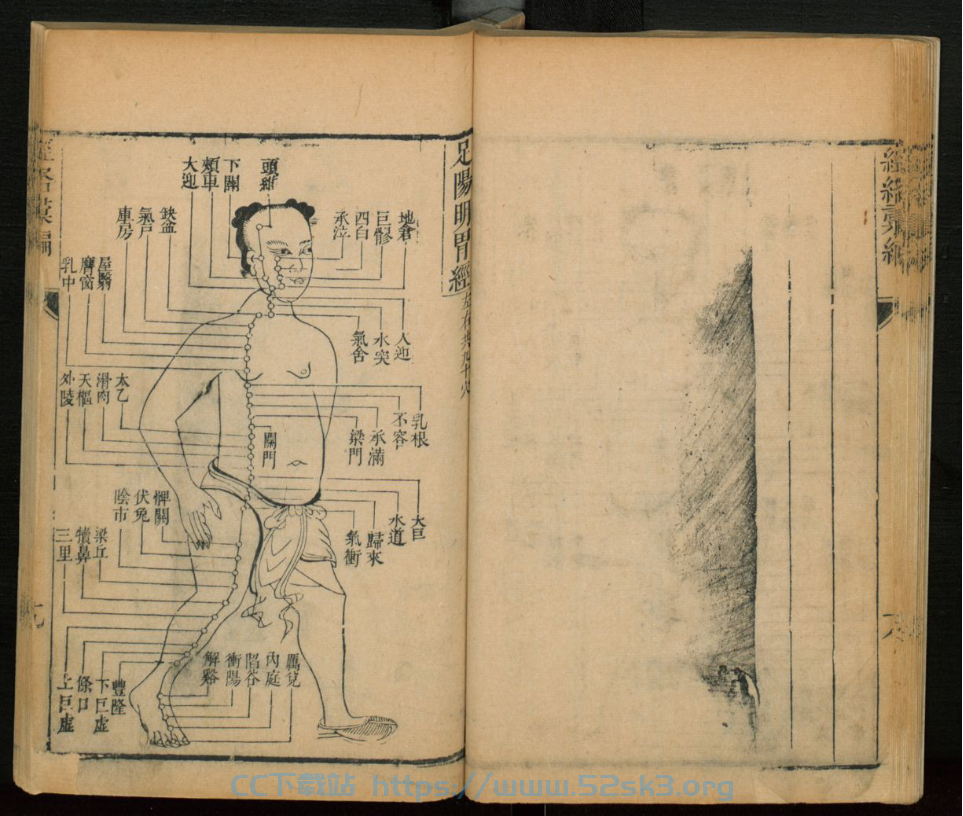 經絡彙編
足陽明胃經
頭維
下關
頰車
大迎
地倉
巨髎
四白
承泣
缺盆
氣戶
庫房
屋翳
膺窗
乳中
人迎
水突
氣舍
太乙
滑肉
天樞
外陵
乳根
不容
承滿
梁門
關門
大巨
水道
歸來
氣衝
髀關
伏兔
陰市
梁丘
犢鼻
三里
厲兌
內庭
陷谷
衝陽
解谿
豐隆
下巨虛
條口
上巨虛
CC下载站 https://www.52sk3.org